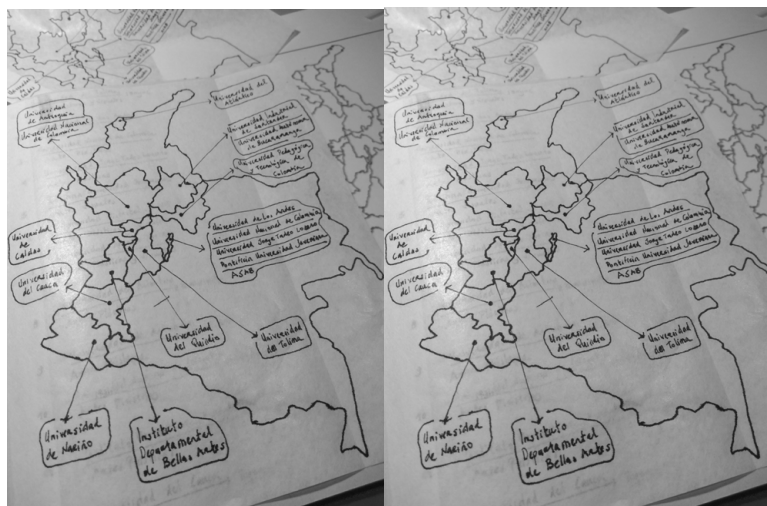 Universidad del
Atlántico
Universidad
de Antioquia
Universidad Nacional
de Colombia
Universidad Industrial
de Santander
Universidad Autónoma
de Bucaramanga
Universidad Pedagógica
Tecnológica de
Colombia
Universidad de Los Andes
Universidad Nacional de Colombia
Universidad Jorge Tadeo Lozano
Pontificia Universidad Javeriana
ASAB
Universidad
de
Caldas
Universidad
del Cauca
Universidad
del Quidio
Universidad
del Tolima
Universidad
de Nariño
Instituto
Departamental
de Bellas Artes
Universidad del
Atlántico
Universidad
de Antioquia
Universidad Nacional
de Colombia
Universidad Industrial
de Santander
Universidad Autónoma
de Bucaramanga
Universidad Pedagógica
Tecnológica de
Colombia
Universidad de Los Andes
Universidad Nacional de Colombia
Universidad Jorge Tadeo Lozano
Pontificia Universidad Javeriana
ASAB
Universidad
de
Caldas
Universidad
del Cauca
Universidad
del Quidio
Universidad
del Tolima
Universidad
de Nariño
Instituto
Departamental
de Bellas Artes